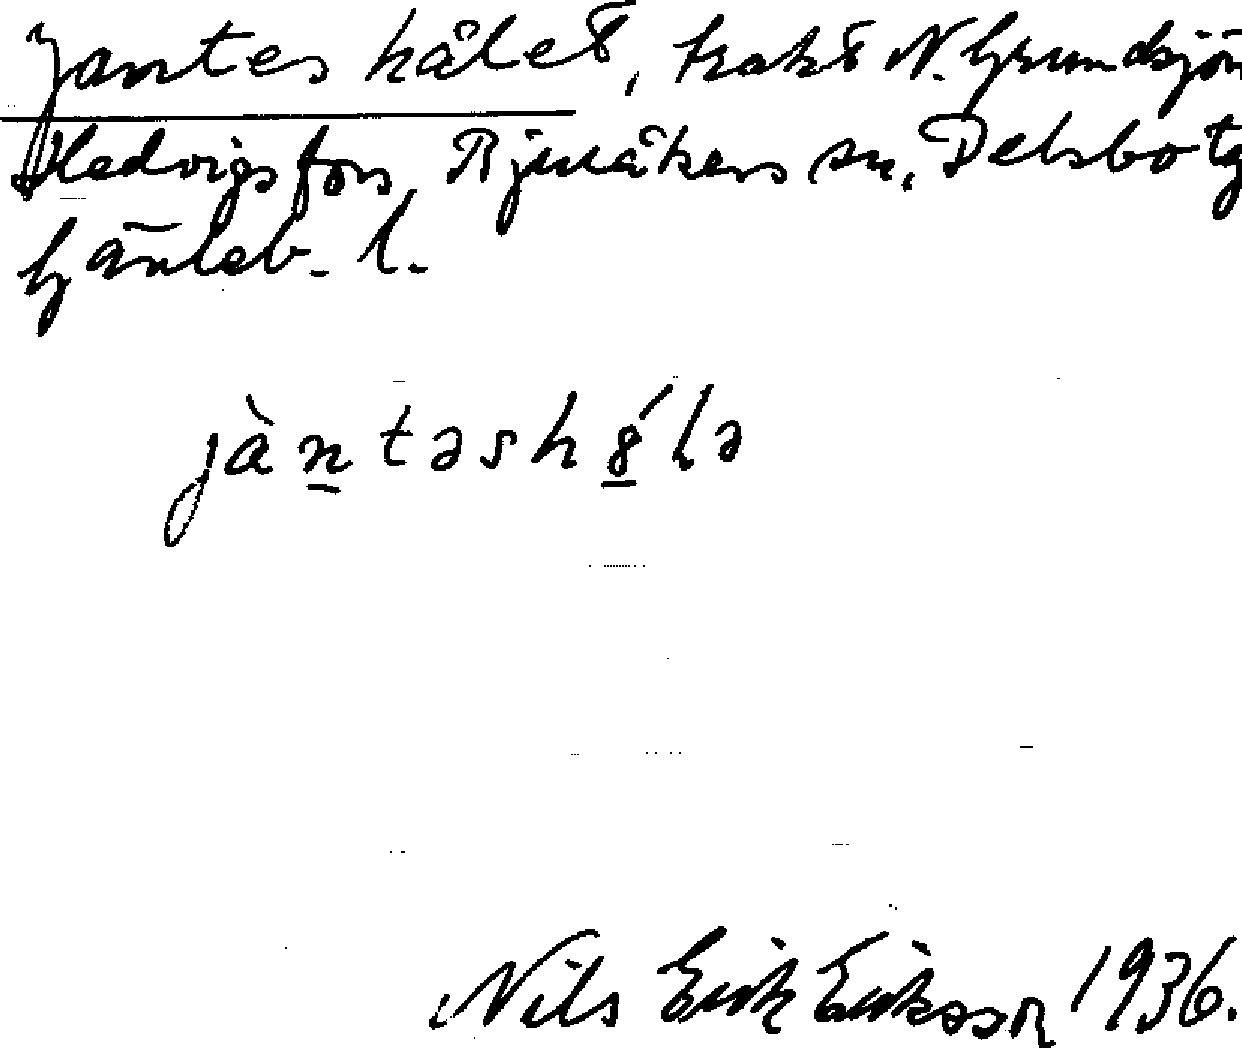 Jantes hålet, trakt N. Grundsjön
Hedvigsfors, Bjuråkers sn, Delsbo tg
Gävleb. l.
jàn̲təshó̲lə
Nils Erik Eriksson 1936.